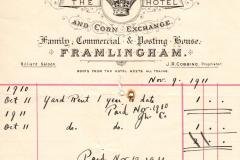 THE HOTEL
AND CORN EXCHANGE.
Family, Commercial & Posting House.
FRAMLINGHAM.
Billiard Saloon.
J.R. COBBING, Proprietor.
BOOTS FROM THE HOTEL MEETS ALL TRAINS.
Nov. 9. 1911
1910
Oct 11 Yard Rent 1 year to date 1
1911 Paid Nov 1910
Oct 11 do. do. 1
Paid Nov 1911